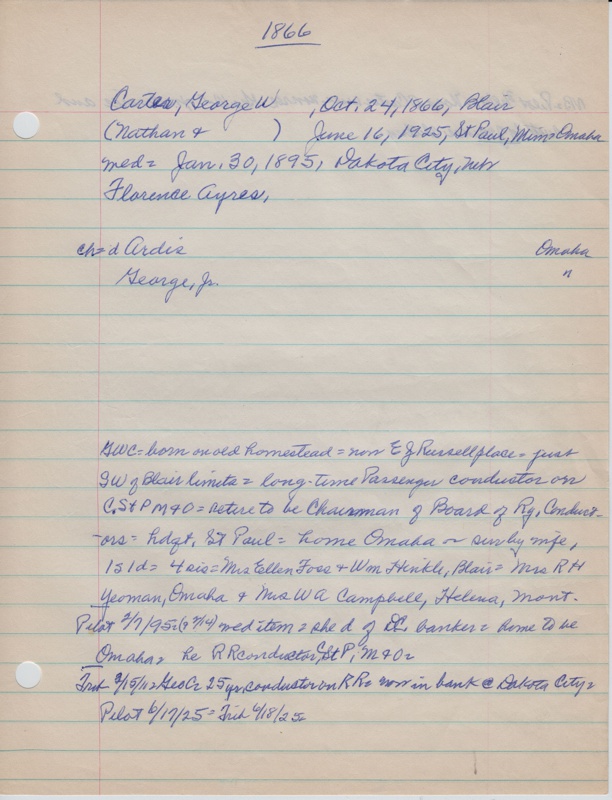 1866
Carter, George W , Oct. 24, 1866, Blair
(Nathan & ) June 16, 1925, St Paul, Minn Omaha
med = Jan. 30, 1895, Dakota City, Neb
Florence Ayres,
ch = d Ardis Omaha
George, Jr. "
GWC = born on old homestead = now E J Russell place = just
SW of Blair limits = long-time Passenger conductor on
C. St P M & O = retire to be Chairman of Board of Ry. Conduct-
-ors = hdqt. St Paul = home Omaha ~ sur by wife,
1 s 1 d = 4 sis = Mrs Ellen Foss & Wm Hinkle, Blair = Mrs R H
Yeoman, Omaha & Mrs W A Campbell, Helena, Mont.
Pilot 2/7/95 med item = she d of DC banker = home to be
Omaha = he R R conductor, C St P, M & O =
Trib 2/15/ Geo C 25 yr conductor on R R = now in bank @ Dakota City =
Pilot 6/17/25 = Trib 6/18/25